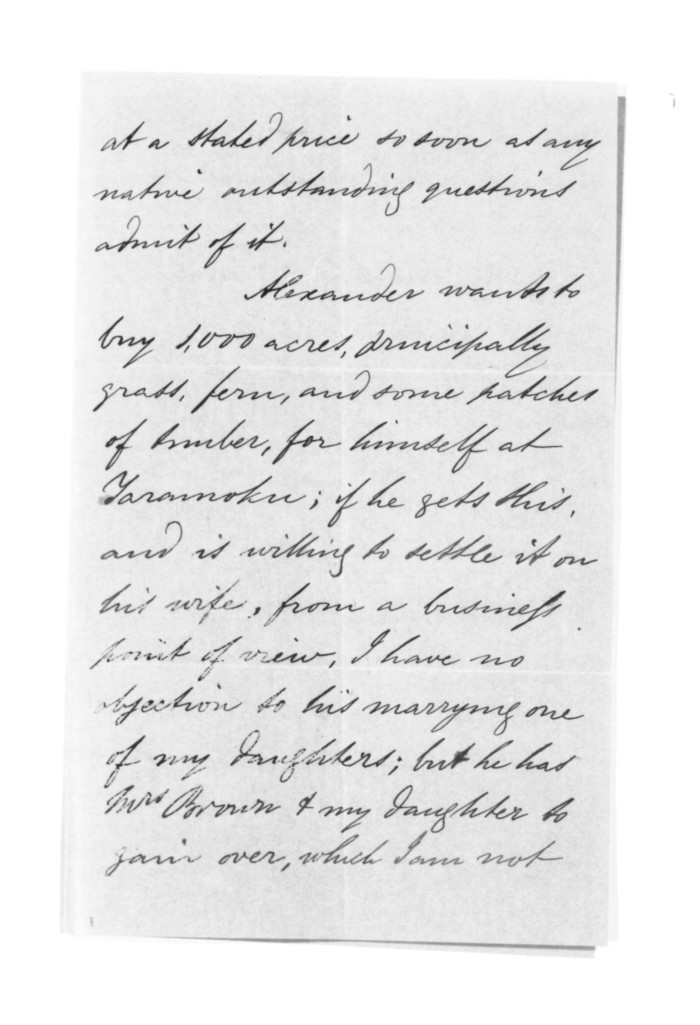 at a stated price so soon as any
native outstanding questions
admit of it.
Alexander wants to
buy 1,000 acres, principally
grass, fern, and some patches
of timber, for himself at
Taramoku; if he gets this,
and is willing to settle it on
his wife, from a business
point of view, I have no
objection to his marrying one
of my daughters; but he has
Mrs Brown & my daughter to
gain over, which I am not